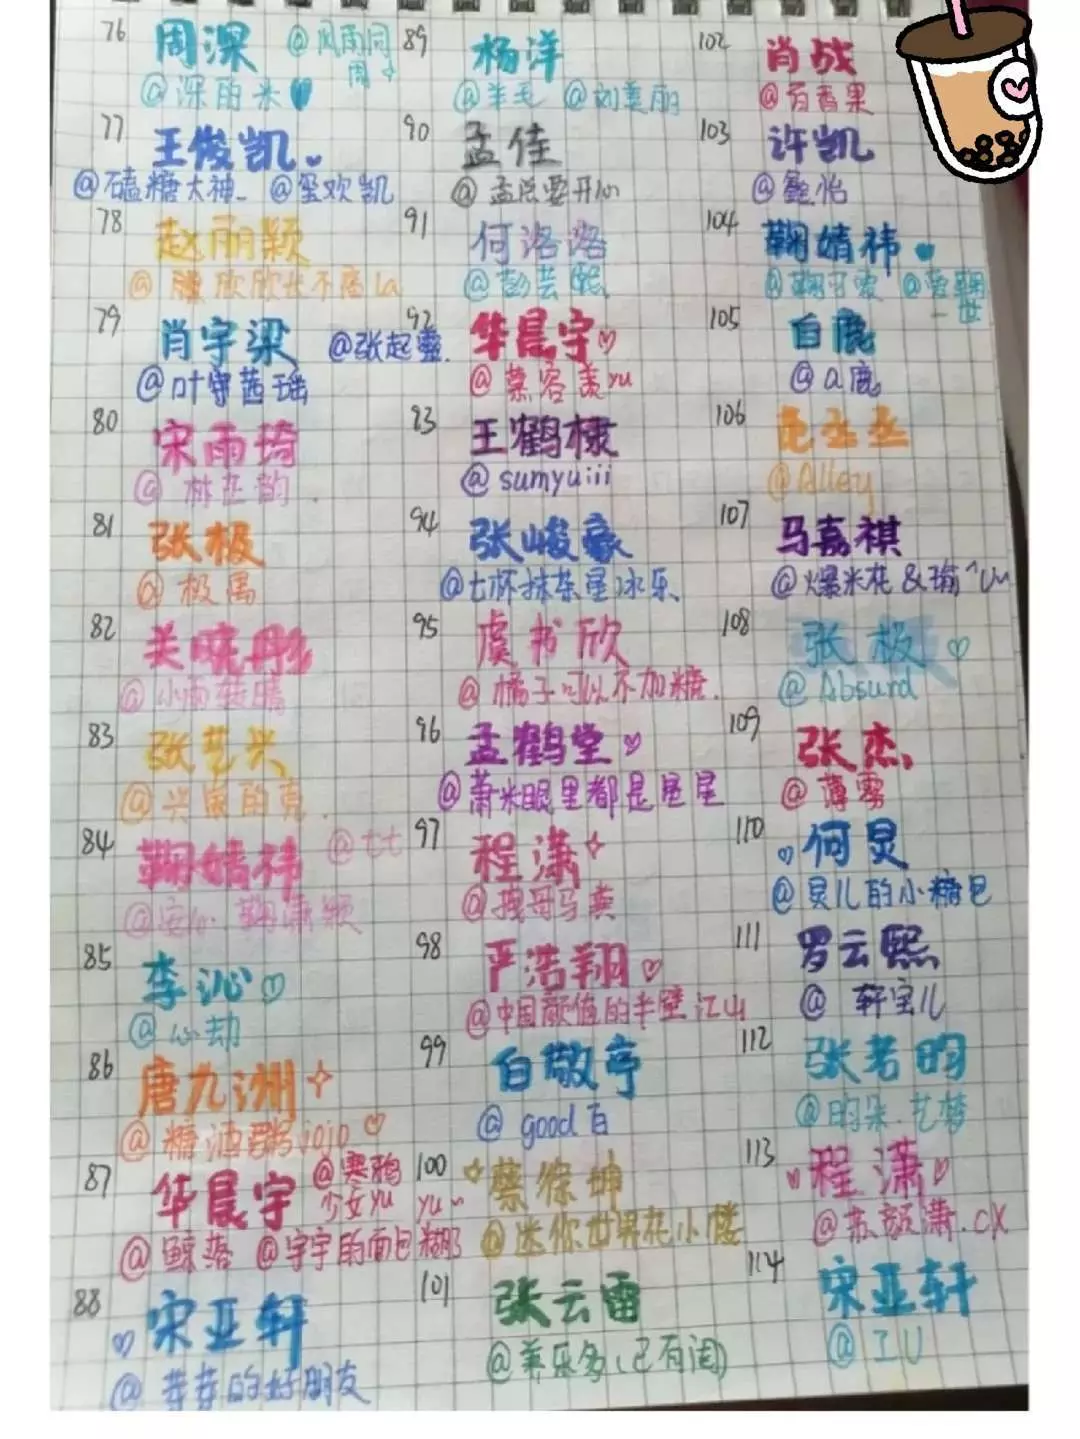 76 周深 @风雨同周
@深的米
77 王俊凯
@磕糖大神 @玺欢凯
78 赵丽颖
79 肖宇梁 @张起灵.
@叶守茜瑶
80 宋雨琦
81 张极
@极禹
82 关晓彤
@小雨转晴
83 张艺兴
84 鞠婧祎 @七七
85 李沁
@心劫
86 唐九洲
@糖油粥jojo
87 华晨宇 @寒鸦少女yu
@鲸落 @宇宇的面包糊
88 宋亚轩
@芽芽的好朋友
89 杨洋
@羊毛 @刘美丽
90 孟佳
@孟总要开心
91 何洛洛
@彭芸熙
92 华晨宇
@慕容羡yu
83 王鹤棣
@sumyuiii
94 张峻豪
@七杯抹茶星冰乐
95 虞书欣
@橘子可以不加糖.
96 孟鹤堂
@萧米眼里都是星星
97 程潇
98 严浩翔
@中国颜值的半壁江山
99 白敬亭
@good白
100 蔡徐坤
@迷你世界花小楼
101 张云雷
@养乐多(已有闺)
102 肖战
@百香果
103 许凯
@鑫怡
104 鞠婧祎
105 白鹿
@a鹿
106 范丞丞
@Alley
107 马嘉祺
108 张极
@Absurd
109 张杰
@薄雾
110 何炅
@炅儿的小糖包
111 罗云熙
@轩宝儿
112 张若昀
@昀朵.艺梦
113 程潇
@苏颜潇.cx
114 宋亚轩
@工U